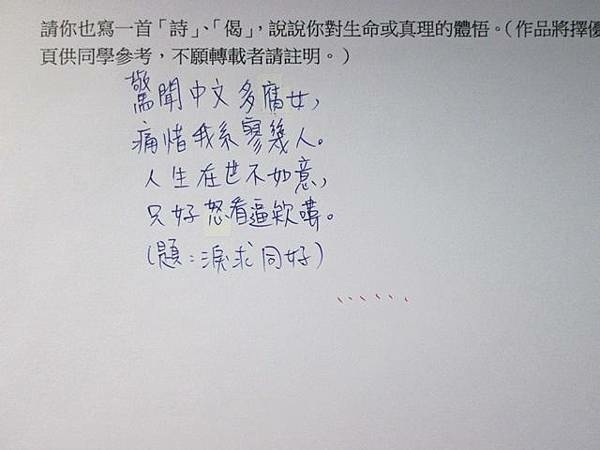 請你也寫一首「詩」、「偈」，說說你對生命或真理的體悟。（作品將擇優
頁供同學參考，不願轉載者請註明。）
驚聞中文多腐女，
痛惜我系寥幾人。
人生在世不如意，
只好怒看逼欸嘍。
（題：淚求同好）